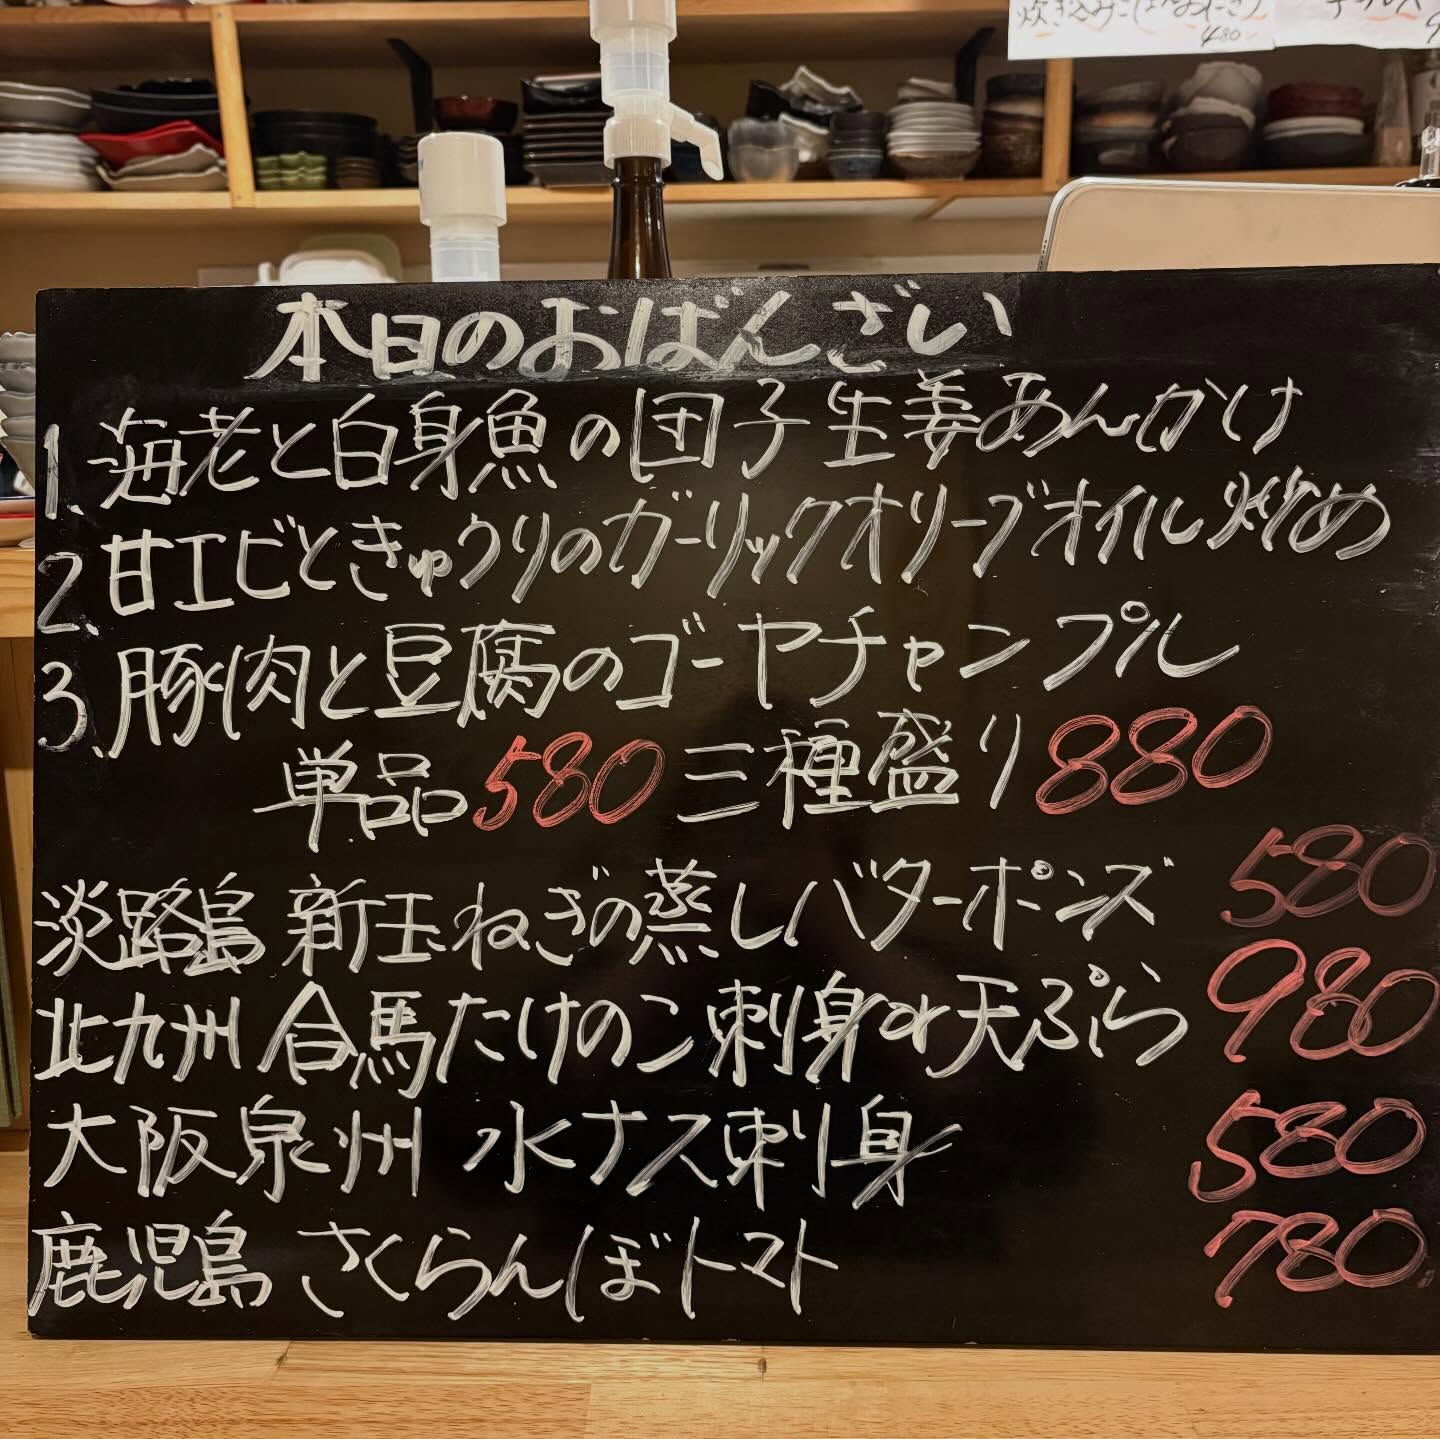 炊き込みごはんおにぎり
480
本日のおばんざい
1. 海老と白身魚の団子生姜あんかけ
2. 甘エビときゅうりのガーリックオリーブオイル炒め
3. 豚肉と豆腐のゴーヤチャンプル
単品580 三種盛り880
淡路島 新玉ねぎの蒸しバターポンズ 580
北九州 合馬たけのこ刺身or天ぷら 980
大阪泉州 水ナス刺身 580
鹿児島 さくらんぼトマト 780